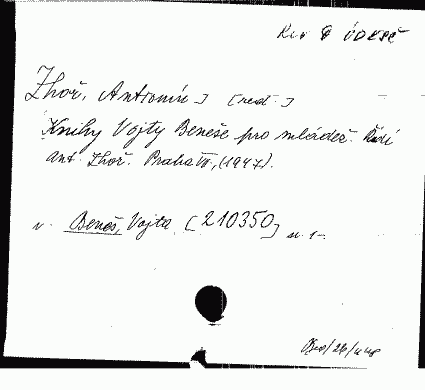 Zhoř, Antonín] [red.]
Knihy Vojty Beneše pro mládež. Řídí
Ant. Zhoř. Praha VII, (1947).
v. Beneš, Vojta [210350]